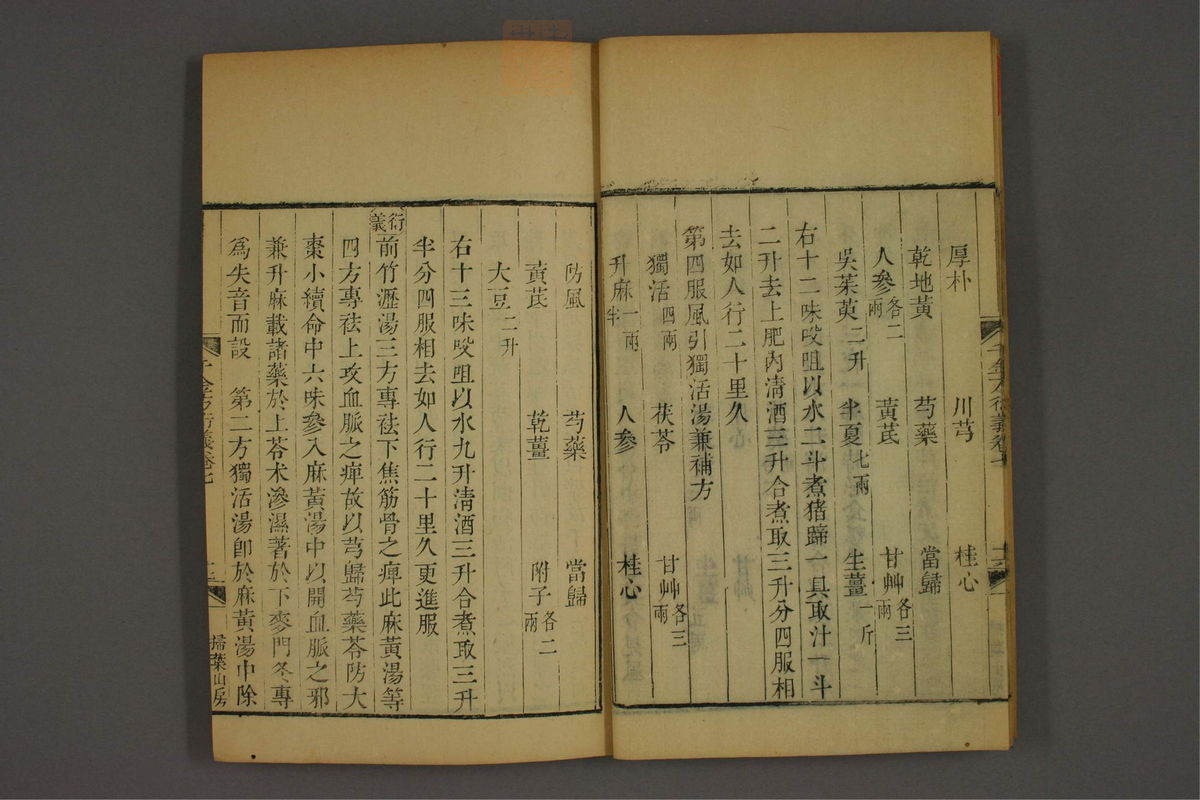 厚朴 川芎 桂心
乾地黃 芍藥 當歸
人參各二兩 黃芪 甘艸各三兩
吳茱萸二升 半夏七兩 生薑一斤
右十二味㕮咀以水二斗煮猪蹄一具取汁一斗
二升去上肥內清酒三升合煮取三升分四服相
去如人行二十里久
第四服風引獨活湯兼補方
獨活四兩 茯苓 甘艸各三兩
升麻一兩半 人參 桂心
防風 芍藥 當歸
黃芪 乾薑 附子各二兩
大豆二升
右十三味㕮咀以水九升清酒三升合煮取三升
半分四服相去如人行二十里久更進服
衍義 前竹瀝湯三方專祛下焦筋骨之痺此麻黃湯等
四方專祛上攻血脈之痺故以芎歸芍藥苓防大
棗小續命中六味參入麻黃湯中以開血脈之邪
兼升麻載諸藥於上苓术滲濕著於下麥門冬專
爲失音而設 第二方獨活湯卽於麻黃湯中除
千金方衍義卷七
掃葉山房